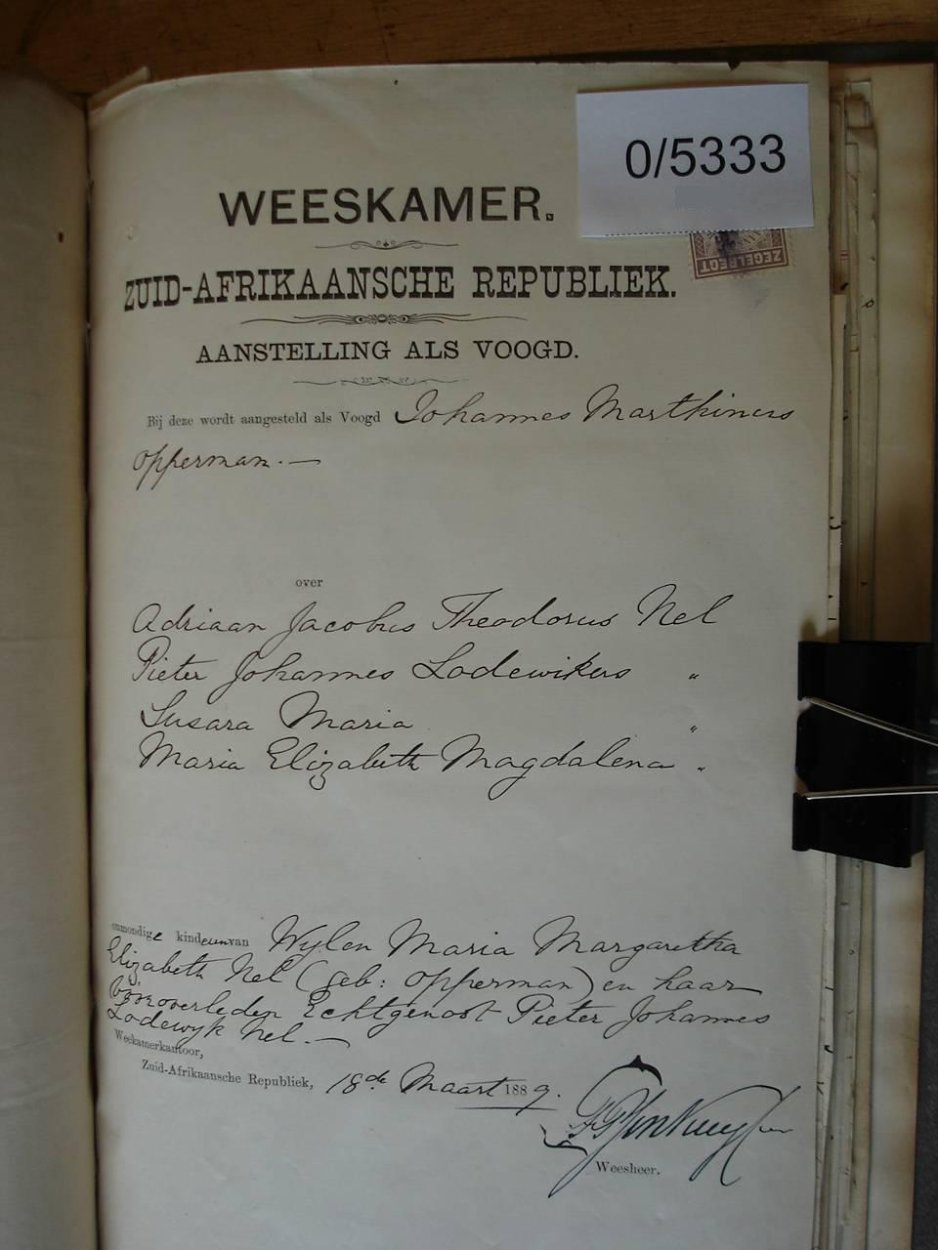 0/5333
WEESKAMER.
ZEGELREGT
ZUID-AFRIKAANSCHE REPUBLIEK.
AANSTELLING ALS VOOGD.
Bij deze wordt aangesteld als Voogd Johannes Marthinus
Opperman.—
over
Adriaan Jacobus Theodorus Nel
Pieter Johannes Lodewikus "
Susara Maria "
Maria Elizabeth Magdalena "
onmondige kinderen van Wylen Maria Margaretha
Elizabeth Nel (geb: Opperman) en haar
vooroverleden Echtgenoot Pieter Johannes
Lodewyk Nel.—
Weeskamerkantoor,
Zuid-Afrikaansche Republiek, 18de Maart 1889.
Weesheer.